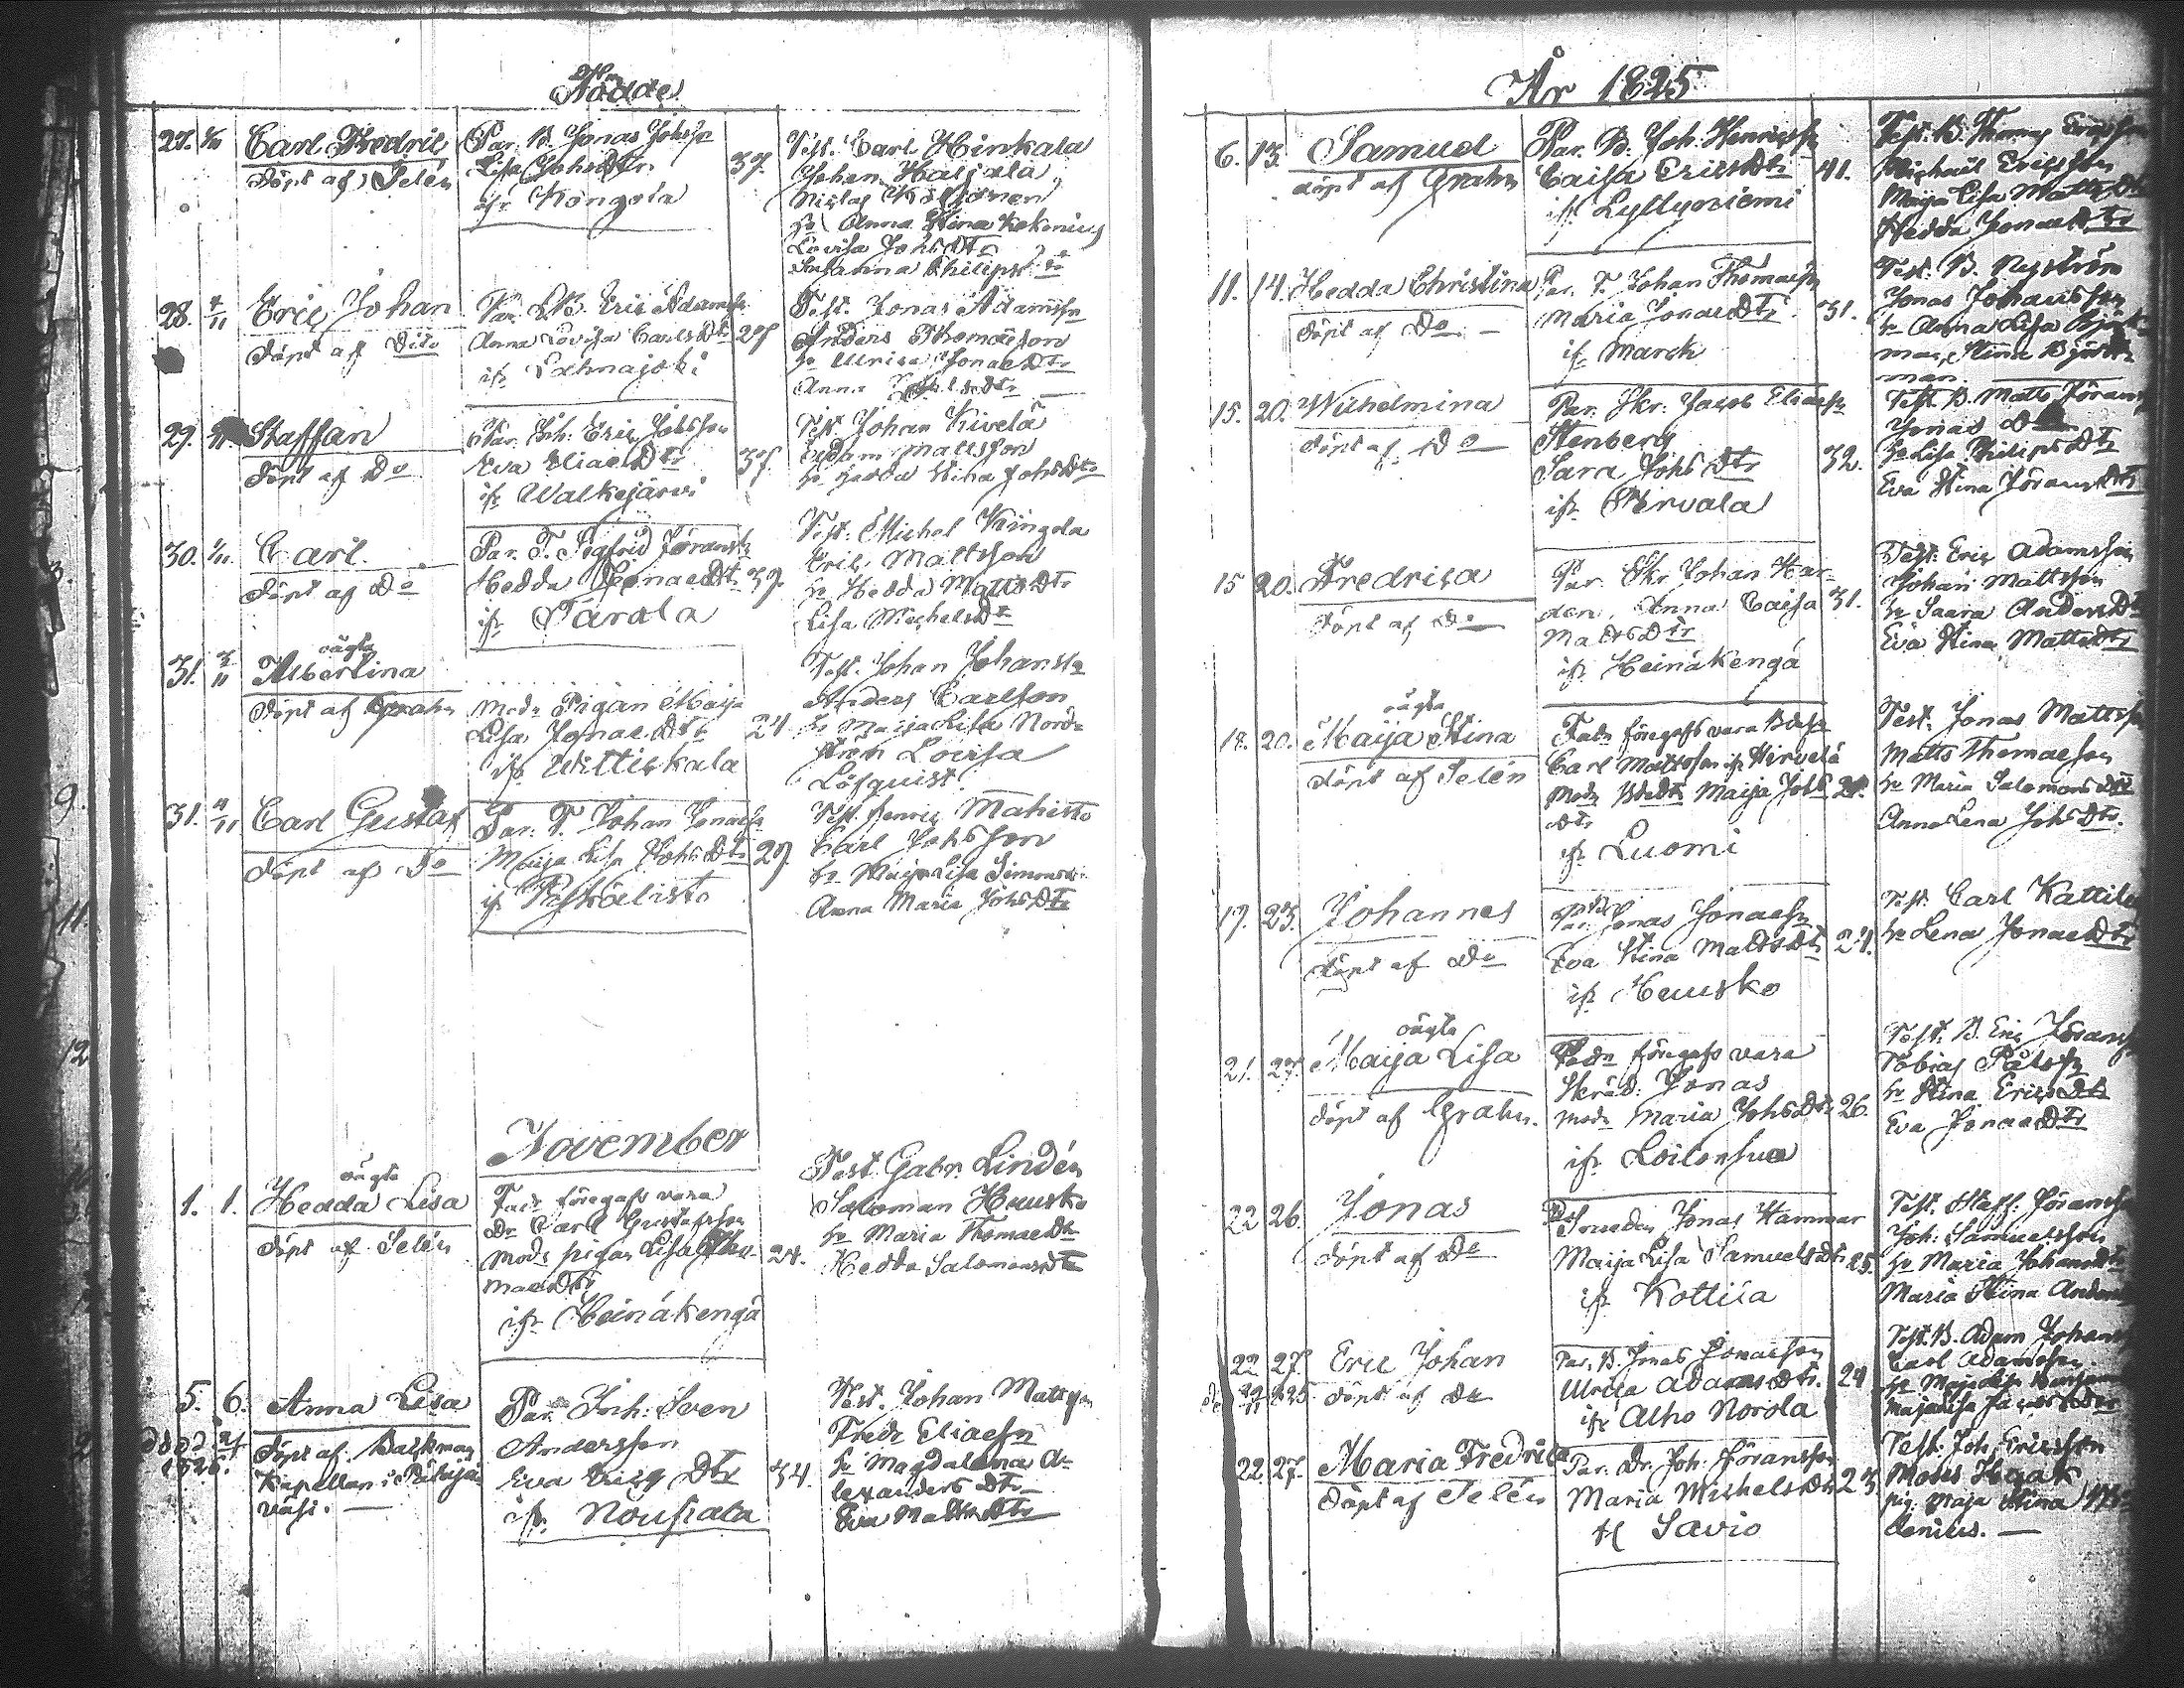 Födde
27.
Carl Fredric
döpt af Selén
Par. B. Jonas Johsson
Lisa Johs Dtr
ifr Köngola
37.
Test. Carl Hinkala
Johan Harjala
Niclas
hr Anna Stina
Lovisa Johs Dtr
Susanna Philips Dr
28. 4/11
Eric Johan
döpt af Dito
Par. Eric Adamsson
Anna Lovisa Carls Dtr
ifr Lahnajoki
27
Test. Jonas Adamsson
Anders Thomasson
hr Ulrica Jonae Dtr
Anna
29.
Staffan
döpt af Do
Par. Inh. Eric Johsson
Eva Eliae Dtr
ifr Walkejärvi
37.
Test. Johan Kivelä
Adam Mattsson
hr Hedda Stina Johs Dtr
30. 1/11
Carl.
döpt af Do
Par. T. Sigfrid Göransson
Hedda Jonae Dtr
ifr Tarola
39.
Test. Michel Küngola
Eric Mattsson
hr Hedda Matts Dtr
Lisa Michels Dtr
31. 3/11
oägta
Albertina
döpt af Grahn
Modr Pigan Maija
Lisa Jonae Dtr
ifr Wittickala
24
Test. Johan Johansson
Anders Carlson
hr Maija Lisa Nord-
Lovisa
Löfquist.
31. 4/11
Carl Gustaf
döpt af Do
Par. T. Johan Jonaesson
Maija Lisa Johs Dtr
ifr
29.
Test. Henric Mahisto
Carl Johsson
hr Maija Lisa Simons
Anna Maria Johs Dtr
November
1. 1.
oägta
Hedda Lisa
döpt af Selén
Fadr föregafs vara
Dr Carl Gustafsson
Modr pigan Lisa Tho-
mae Dtr
ifr Heinäkengä
24.
Test. Gabr. Lindén
Saloman Huusko
hr Maria Thomae Dtr
Hedda Salomons Dtr
5. 6.
Anna Lisa
1826.
döpt af Backman
Kapellan i Pihlaja-
väsi.
Par. Inh. Sven
Andersson
Eva Erics Dtr
ifr Nousiala
34.
Test. Johan Mattson
Fredr Eliaesson
hr Magdalena A-
lexanders Dtr
Eva Matts Dtr
År 1825
6. 13.
Samuel
döpt af Grahn
Par. B. Joh. Henricsson
Caisa Erics Dtr
ifr Lyllyniemi
41.
Test. B. Thomas Ericsson
Michael Ericsson
Maija Lisa Matts Dtr
Hedda Jonae Dtr
11. 14.
Hedda Christina
döpt af Do
Par. T. Johan Thomaesson
Maria Jonae Dtr
ifr March
31.
Test. B. Nyström
Jonas Johansson
hr Anna Lisa Björk-
man, Stina Björk-
man
15. 20.
Wilhelmina
döpt af Do
Par. Skr. Jacob Eliaesson
Stenberg
Sara Johs Dtr
ifr Pervala
32.
Test. B. Matts Göransson
Jonas Do
hr Lisa Philips Dtr
Eva Stina Görans Dtr
15 20.
Fredrica
döpt af Do
Par. Skr Johan Har-
den, Anna Caisa
Matts Dtr
ifr Heinäkengä
31.
Test. Eric Adamsson
Johan Mattsson
hr Saara Anders Dtr
Eva Stina Matts Dtr
18. 20.
oägta
Maija Stina
döpt af Selén
Fadr föregafs vara
Carl Mattsson ifr Hirvelä
Modr Maija Johs
Dtr
ifr Luomi
Test. Jonas Mattsson
Matts Thomaesson
hr Maria Salomons Dtr
Anna Lena Johs Dtr.
19. 23.
Johannes
döpt af Do
Par. Jonas Jonaesson
Eva Stina Matts Dtr
ifr Huusko
24.
Test. Carl Kattila
hr Lena Jonae Dtr
21. 27.
oägta
Maija Lisa
döpt af Grahn.
Fadr föregafs vara
Skräd. Jonas
Modr Maria Johs Dtr
ifr Loilonsuo
26.
Test. B. Eric Göransson
Tobias Pålsson
hr Stina Erics Dtr
Eva Jonae Dtr
22 26.
Jonas
döpt af Do
Par Smeden Jonas Hammar
Maija Lisa Samuels Dtr
ifr Kottila
25.
Test. Staff. Göransson
Joh. Samuelsson
hr Maria Johans Dtr
Maria Stina Anders
22 27.
Eric Johan
döpt af Do
Par. B. Jonas Jonaesson
Ulrica Adams Dtr.
ifr Alho Norola
24
Test. B. Adam Johansson
Carl Adamsson.
22. 27.
Maria Fredrica
döpt af Selén
Par. Dr. Joh. Göransson
Maria Michels Dtr
fr Savio
23.
Test. Joh. Ericsson
Moses Haak
pig. Maja Stina